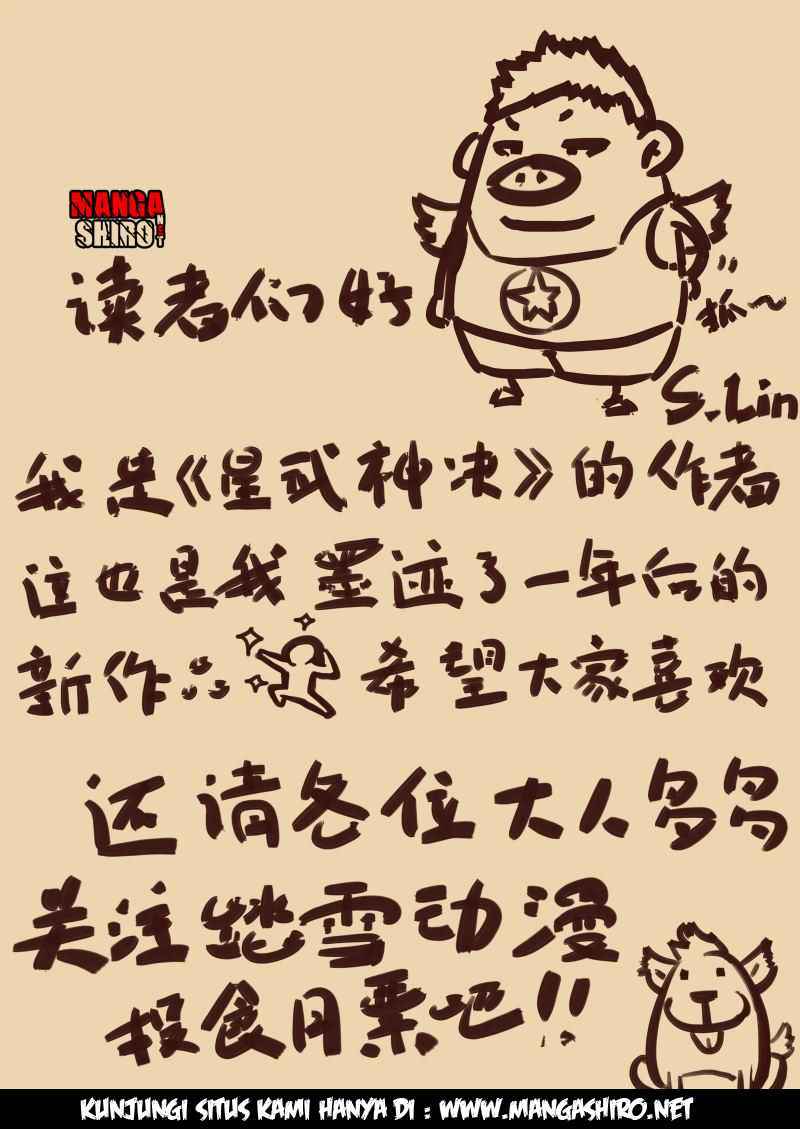 MANGA
SHIRO.NET
读者们好
狐~
S.Lin
我是《星武神决》的作者
这也是我墨迹了一年后的
新作 希望大家喜欢
还请各位大人多多
关注踏雪动漫
投食月票吧!!
KUNJUNGI SITUS KAMI HANYA DI : WWW.MANGASHIRO.NET